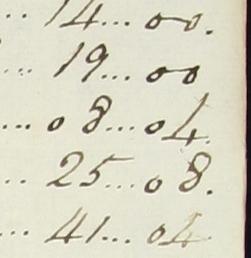 ... 14... 00.
... 19... 00
... 08... 04.
... 25... 08.
... 41... 04